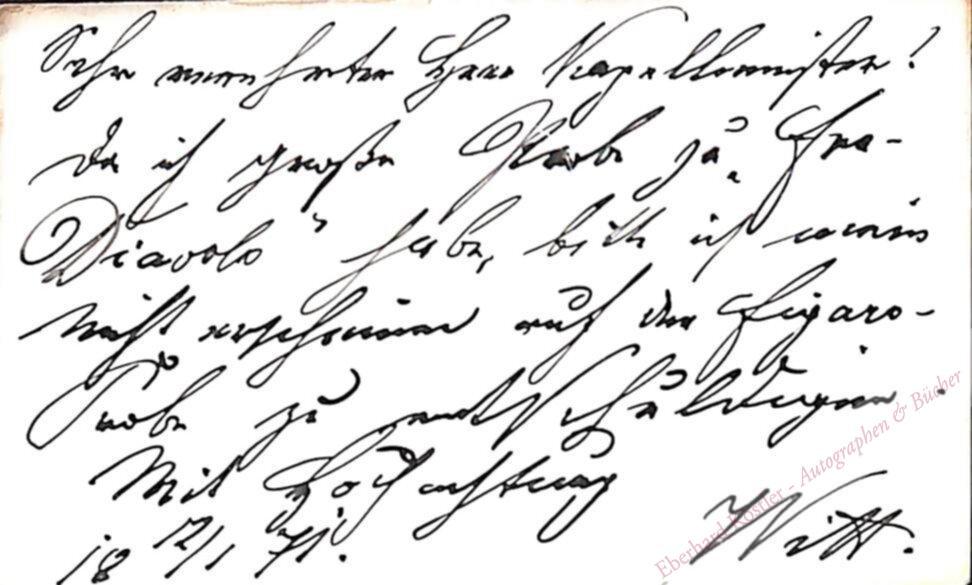 Sehr verehrter Herr Kapellmeister!
Da ich große Probe zu „Fra-
Diavolo“ habe, bitte ich mein
Nichterscheinen auf der Figaro-
Probe zu entschuldigen.
Mit Hochachtung
18 12/1 71. Witt.
Eberhard Köstler - Autographen & Bücher